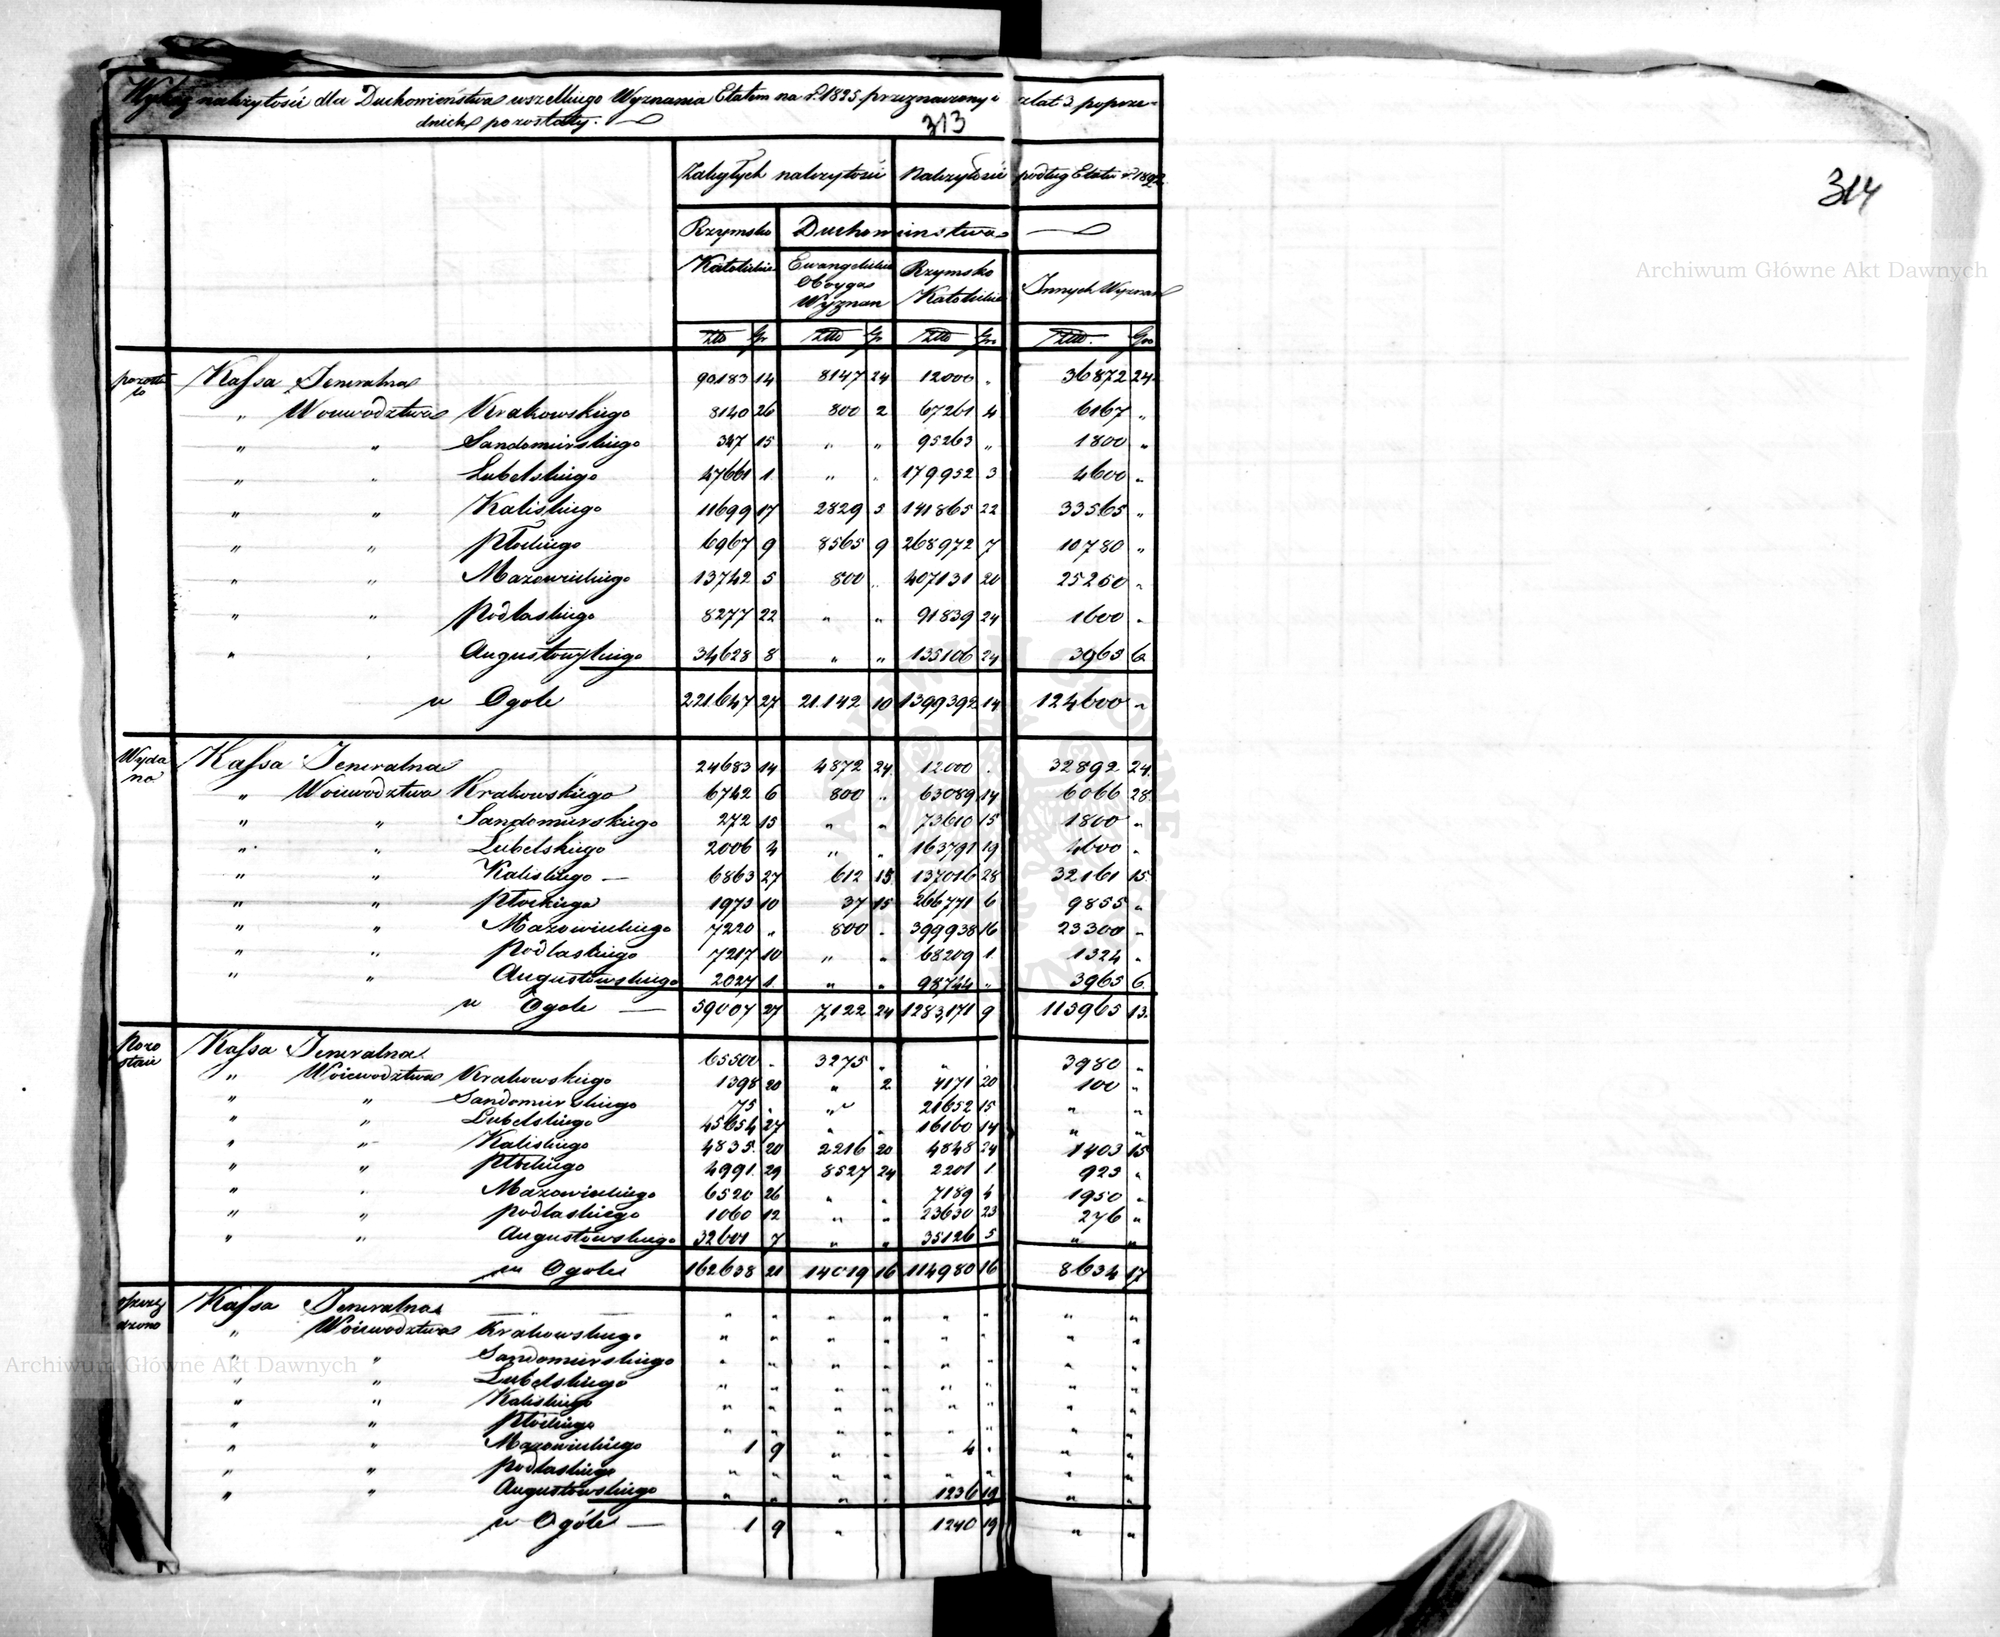 Wykaz należytości dla Duchowieństwa wszelkiego Wyznania Etatem na r. 1825 przeznaczony i z lat 3 poprze-
dnich pozostały.
313
314
Zaległych należytości Należytości podług Etatu r. 182
Rzymsko Duchowieństwa
Katolickie Ewangelickie Oboyga Wyznan Rzymsko Katolickie Innych Wyznań
Złto Gr Złto Gr Złto Gr Złto Gro
pozosta
ło
Kassa Jeneralna 90183 14 8147 24 12000 „ 36872 24
„ Woiewodztwa Krakowskiego 8140 26 800 2 67261 4 6167 „
„ „ Sandomirskiego 347 15 „ „ 95263 „ 1800 „
„ „ Lubelskiego 47661 1 „ „ 179952 3 4600 „
„ „ Kaliskiego 11699 17 2829 5 141865 22 33565 „
„ „ Płockiego 6967 9 8565 9 268972 7 10780 „
„ „ Mazowieckiego 13742 5 800 „ 407131 20 25250 „
„ „ Podlaskiego 8277 22 „ „ 91839 24 1600 „
„ „ Augustowskiego 34628 8 „ „ 135106 24 3965 6
w Ogole 221647 27 21.142 10 1399392 14 124600 „
Wyda
no
Kassa Jeneralna 24683 14 4872 24 12000 „ 32892 24
„ Woiewodztwa Krakowskiego 6742 6 800 „ 63089 14 6066 28
„ „ Sandomirskiego 272 15 „ „ 73610 15 1800 „
„ „ Lubelskiego 2006 4 „ „ 163791 19 4600 „
„ „ Kaliskiego 6863 27 612 15 137016 28 32161 15
„ „ Płockiego 1975 10 37 15 266771 6 9855 „
„ „ Mazowieckiego 7220 „ 800 „ 399938 16 23300 „
„ „ Podlaskiego 7217 10 „ „ 68209 1 1324 „
„ „ Augustowskiego 2027 1 „ „ 98744 „ 3965 6
w Ogole 59007 27 7,122 24 1283,171 9 115965 13
Pozo
staie
Kassa Jeneralna 65500 „ 3275 „ „ „ 3980 „
„ Woiewodztwa Krakowskiego 1398 20 „ 2 4171 20 100 „
„ „ Sandomirskiego 75 „ „ 21652 15 „ „
„ „ Lubelskiego 45654 27 „ „ 16160 14 „ „
„ „ Kaliskiego 4835 20 2216 20 4848 24 1403 15
„ „ Płockiego 4991 29 8527 24 2201 1 925 „
„ „ Mazowieckiego 6520 26 „ „ 7189 4 1950 „
„ „ Podlaskiego 1060 12 „ „ 23630 23 276 „
„ „ Augustowskiego 32601 7 „ „ 35126 5 „ „
w Ogole 162638 21 14019 16 114980 16 8634 17
Kassa Jeneralna „ „ „ „ „ „ „ „
„ Woiewodztwa Krakowskiego „ „ „ „ „ „ „ „
„ „ Sandomirskiego „ „ „ „ „ „ „ „
„ „ Lubelskiego „ „ „ „ „ „ „ „
„ „ Kaliskiego „ „ „ „ „ „ „ „
„ „ Płockiego „ „ „ „ „ „ „ „
„ „ Mazowieckiego 1 9 „ „ 4 „ „ „
„ „ Podlaskiego „ „ „ „ „ „ „ „
„ „ Augustowskiego „ „ „ „ 1236 19 „ „
w Ogóle 1 9 „ 1240 19 „ „
Archiwum Główne Akt Dawnych
Archiwum Główne Akt Dawnych